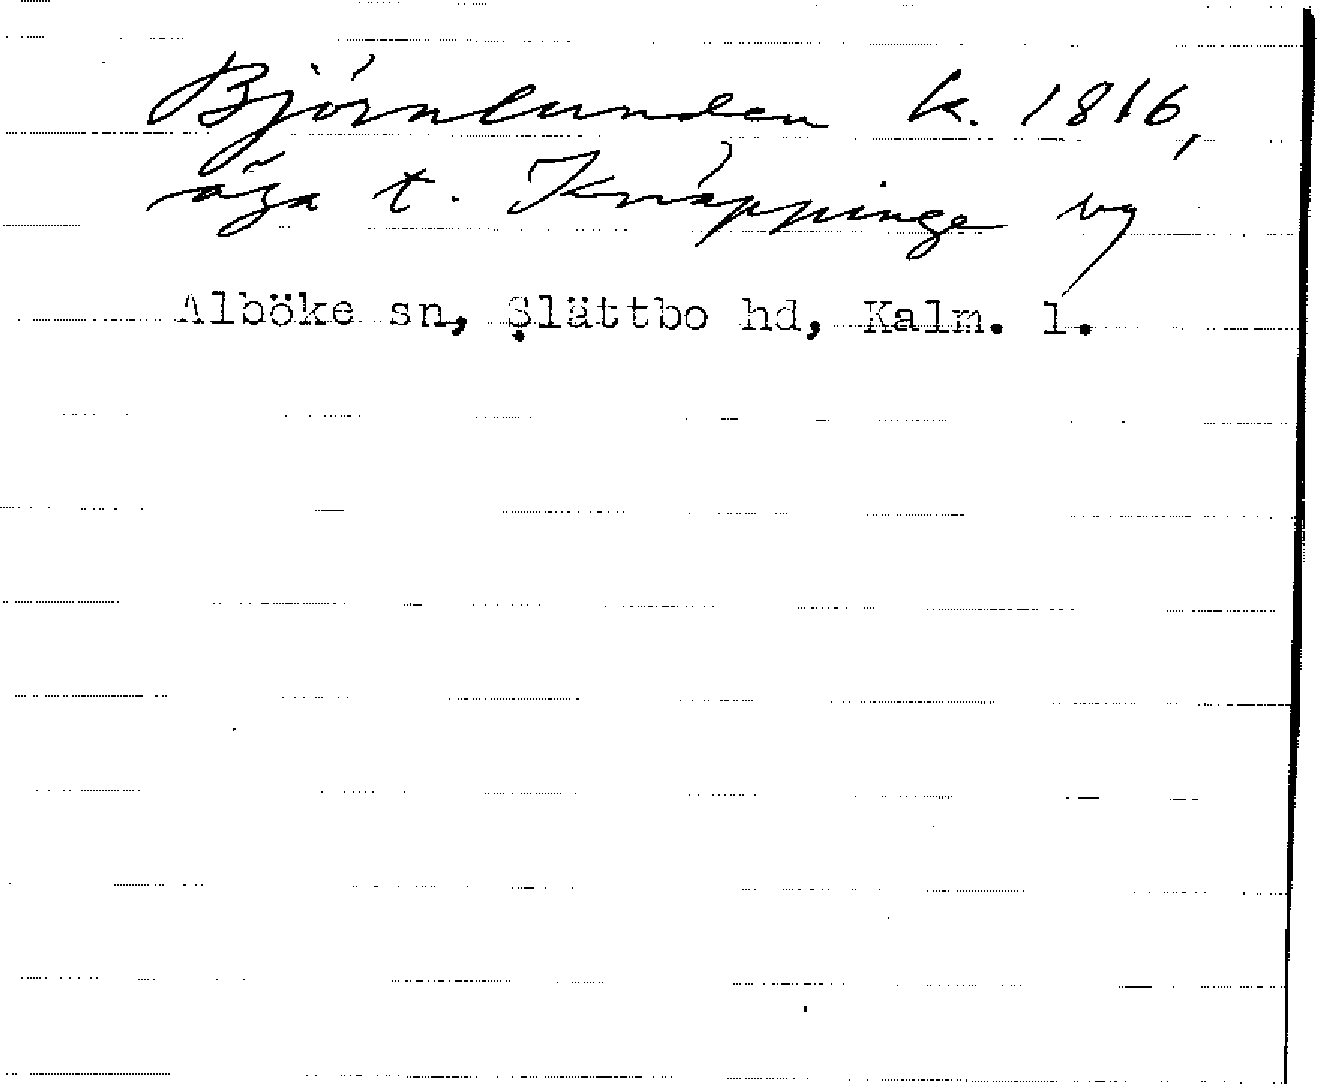 Björnlunden k. 1816,
äga t. Knäppinge by
Alböke sn, Ṣlättbo hd, Kalm. l.